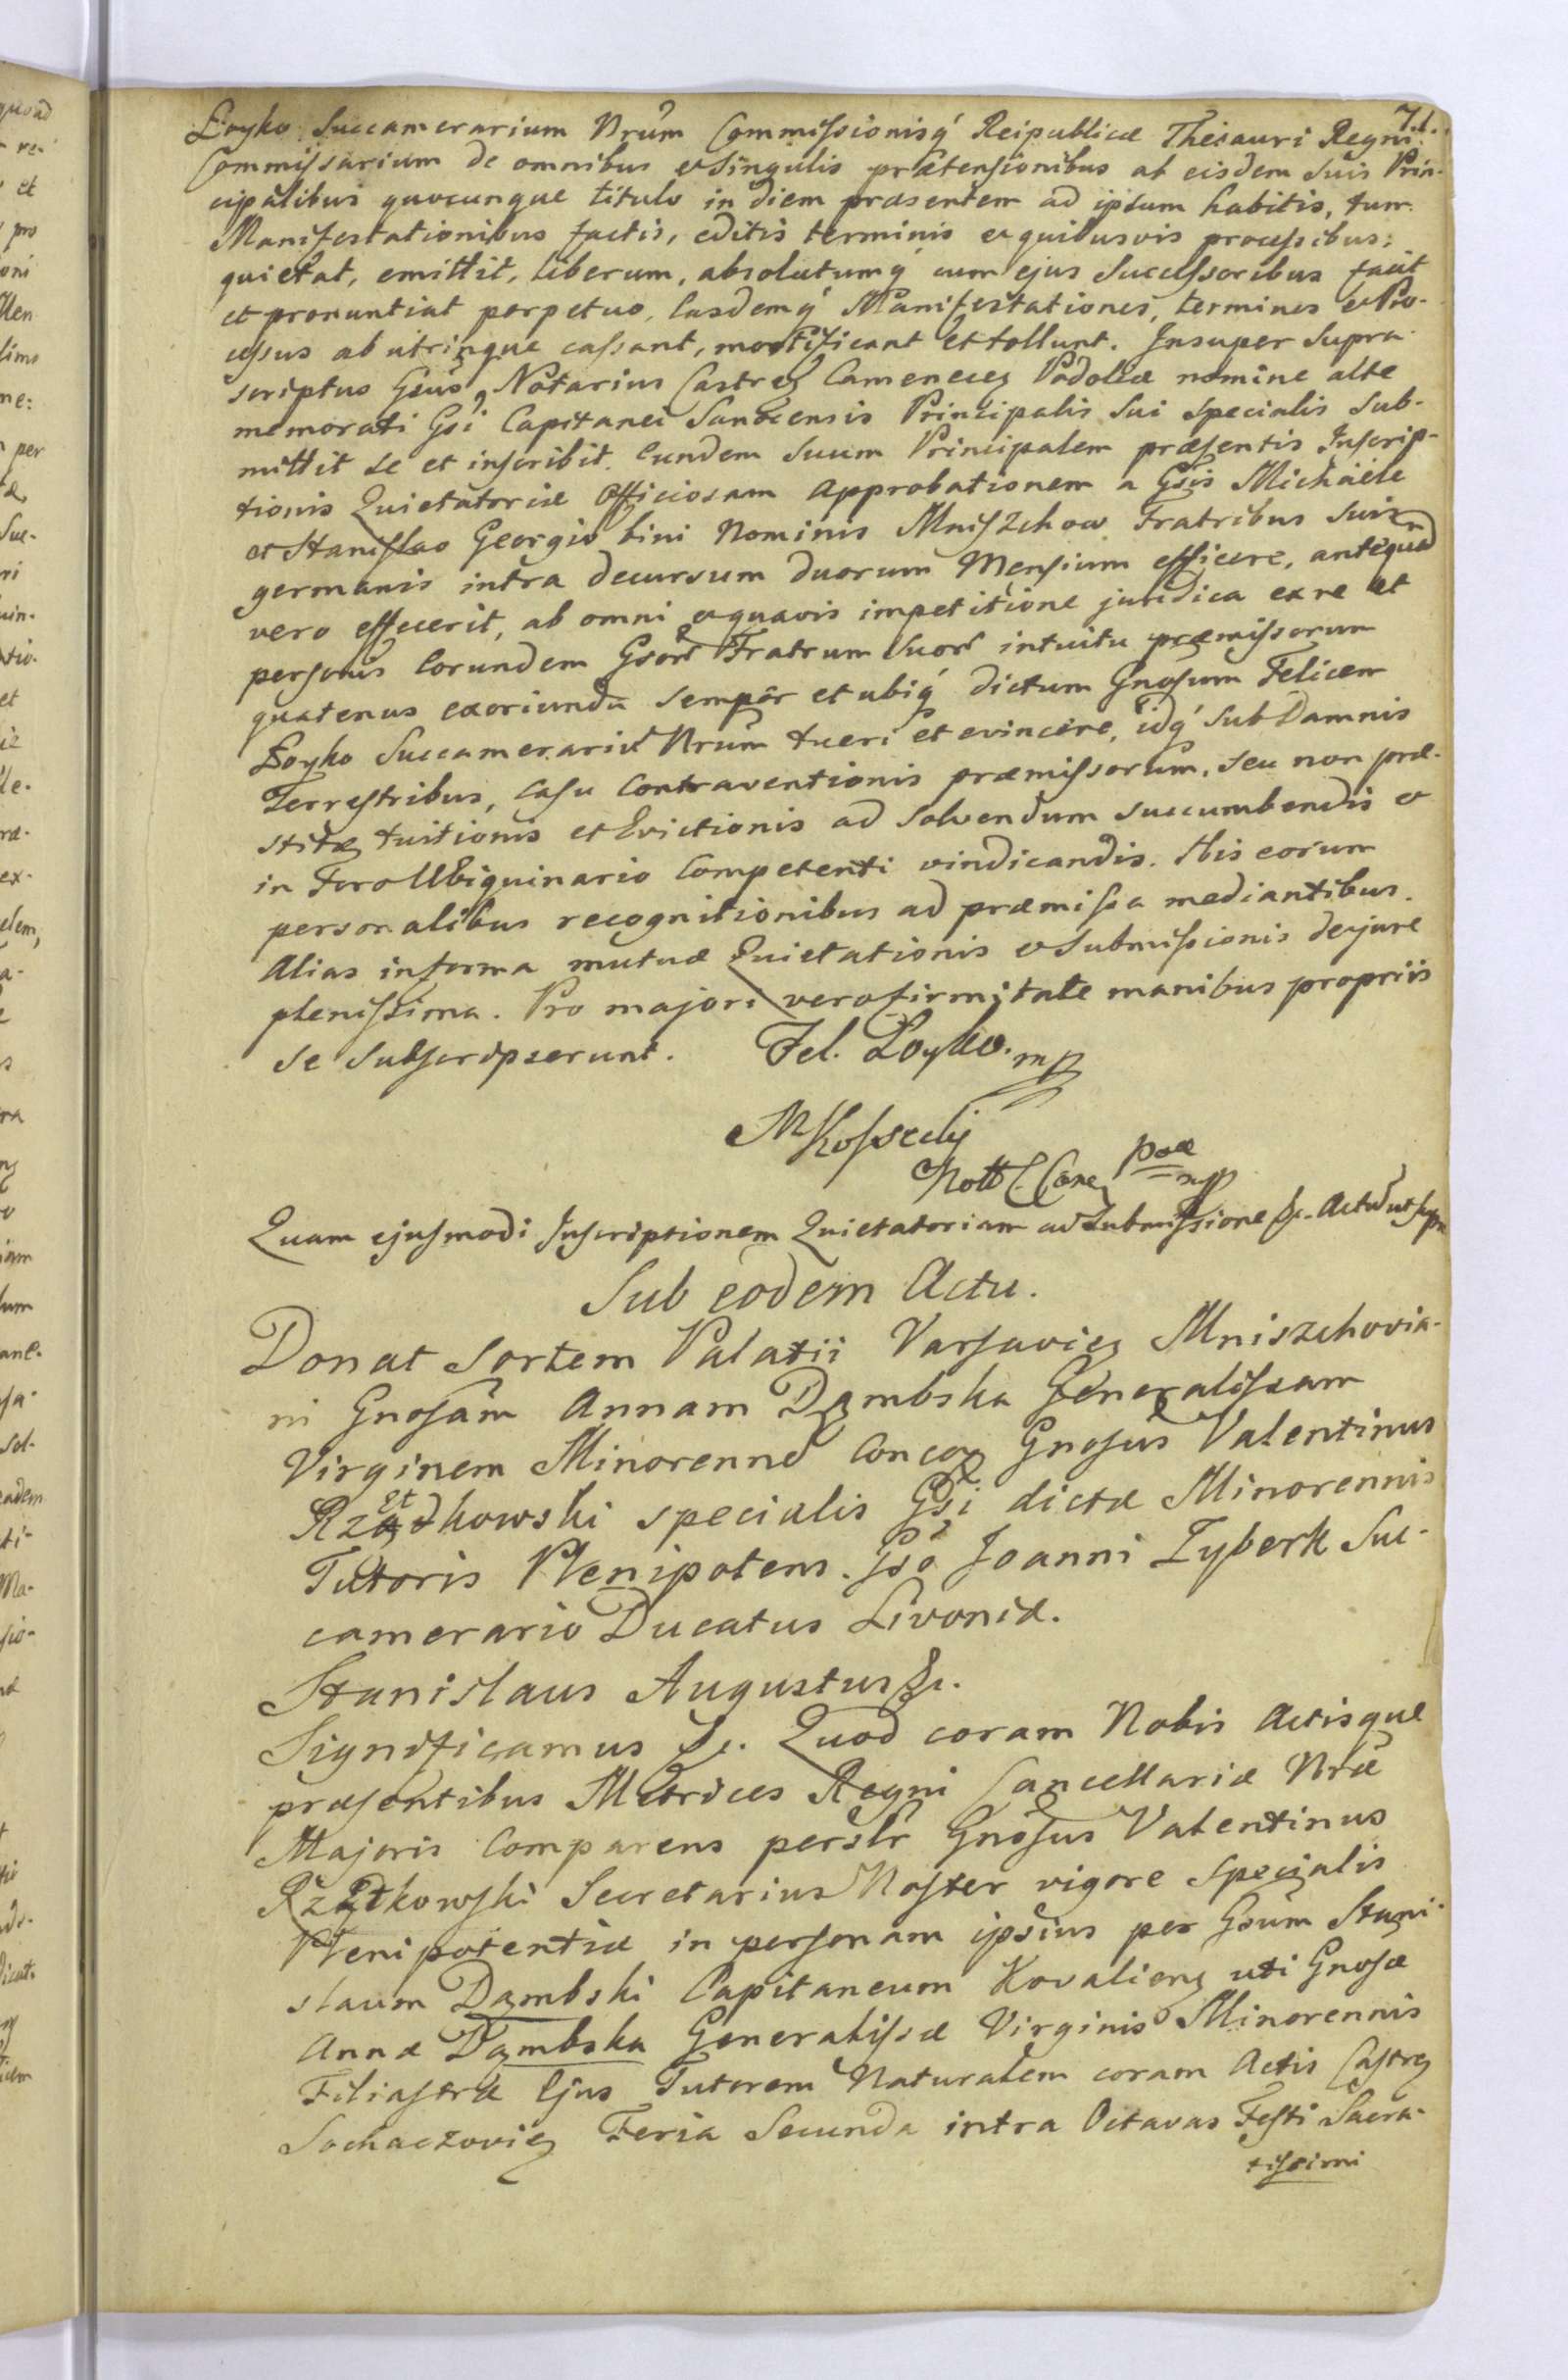 71.
Łoyko Succamerarium Nrum Commissionisq́ Reipublicæ Thesauri Regni
Commissarium de omnibus et Singulis prætensionibus ab eisdem Suis Prin-
cipalibus quocunque titulo in diem præsentem ad ipsum habitis, tum
Manifestationibus factis, editis terminis et quibusvis processibus;
quietat, emittit, liberum, absolutumq́ cum ejus Successoribus facit
et pronuntiat perpetuo. Easdemq́ Manifestationes, terminos et Pro-
cessus ab utrinque cassant, mortificant et tollunt. Insuper Supra
scriptus Gsus, Notarius Castreȝ Cameneceȝ Podoliæ nomine alte
memorati Gsi Capitanei Sanocensis Principalis Sui Specialis Sub-
mittit se et inscribit Eundem Suum Principalem præsentis Inscrip-
tionis Quietatoriæ Officiosam Approbationem a Gsis Michaele
et Stanislao Georgio bini Nominis Mniszchow Fratribus Suis
germanis intra decursum duorum Mensium efficere, antequam
vero effecerit, ab omni et quavis impetitione juridica ex re et
personis Eorundem Gsor̃ Fratrum Suor̃ intuitu præmissorum
quatenus exoriunda semper et ubiq́ dictum Gnosum Felicem
Łoyko Succamerariũ Nrum tueri et evincere, idq́ Sub Damnis
Terrestribus, Casu Contraventionis præmissorum, Seu non præ-
stitæ tuitionis et Evictionis ad Solvendum succumbendis et
in Foro Ubiquinario Competenti vindicandis. His eorum
personalibus recognitionibus ad præmissa mediantibus.
Alias in forma mutuæ Quietationis et Submissionis de jure
plenissima. Pro majori vero firmitate manibus propriis
se Subscripserunt. Fel. Łoyko. mp
M Kossecky
Nott C. Came Poae mpp
Quam ejusmodi Inscriptionem Quietatoriam ac Submissione &c. Actu ut supra
Sub eodem Actu.
Donat Sortem Palatii Varsavieȝ Mniszchovia-
ni Gnosam Annam Dąmbska Generalissam
Virginem Minorenne Conceȝ Gnosus Valentinus
Rzętkowski specialis Gsi dictæ Minorennis
Tutoris Plenipotens. Gso Joanni Zyberk Suc-
camerario Ducatus Livoniæ.
Stanislaus Augustus &c.
Significamus &c. Quod coram Nobis Actisque
præsentibus Metrices Regni Cancellariæ Nræ
Majoris Comparens perslr Gnosus Valentinus
Rzętkowski Secretarius Noster vigore Specialis
Plenipotentiæ in personam ipsius per Gsum Stani-
slaum Dąmbski Capitaneum Kovalieng uti Gnosæ
Annæ Dąmbska Generalissæ Virginis Minorennis
Filiastræ Ejus Tutorem Naturalem coram Actis Castreȝ
Sochaczovieȝ Feria Secunda intra Octavas Festi Sacra-
tissimi